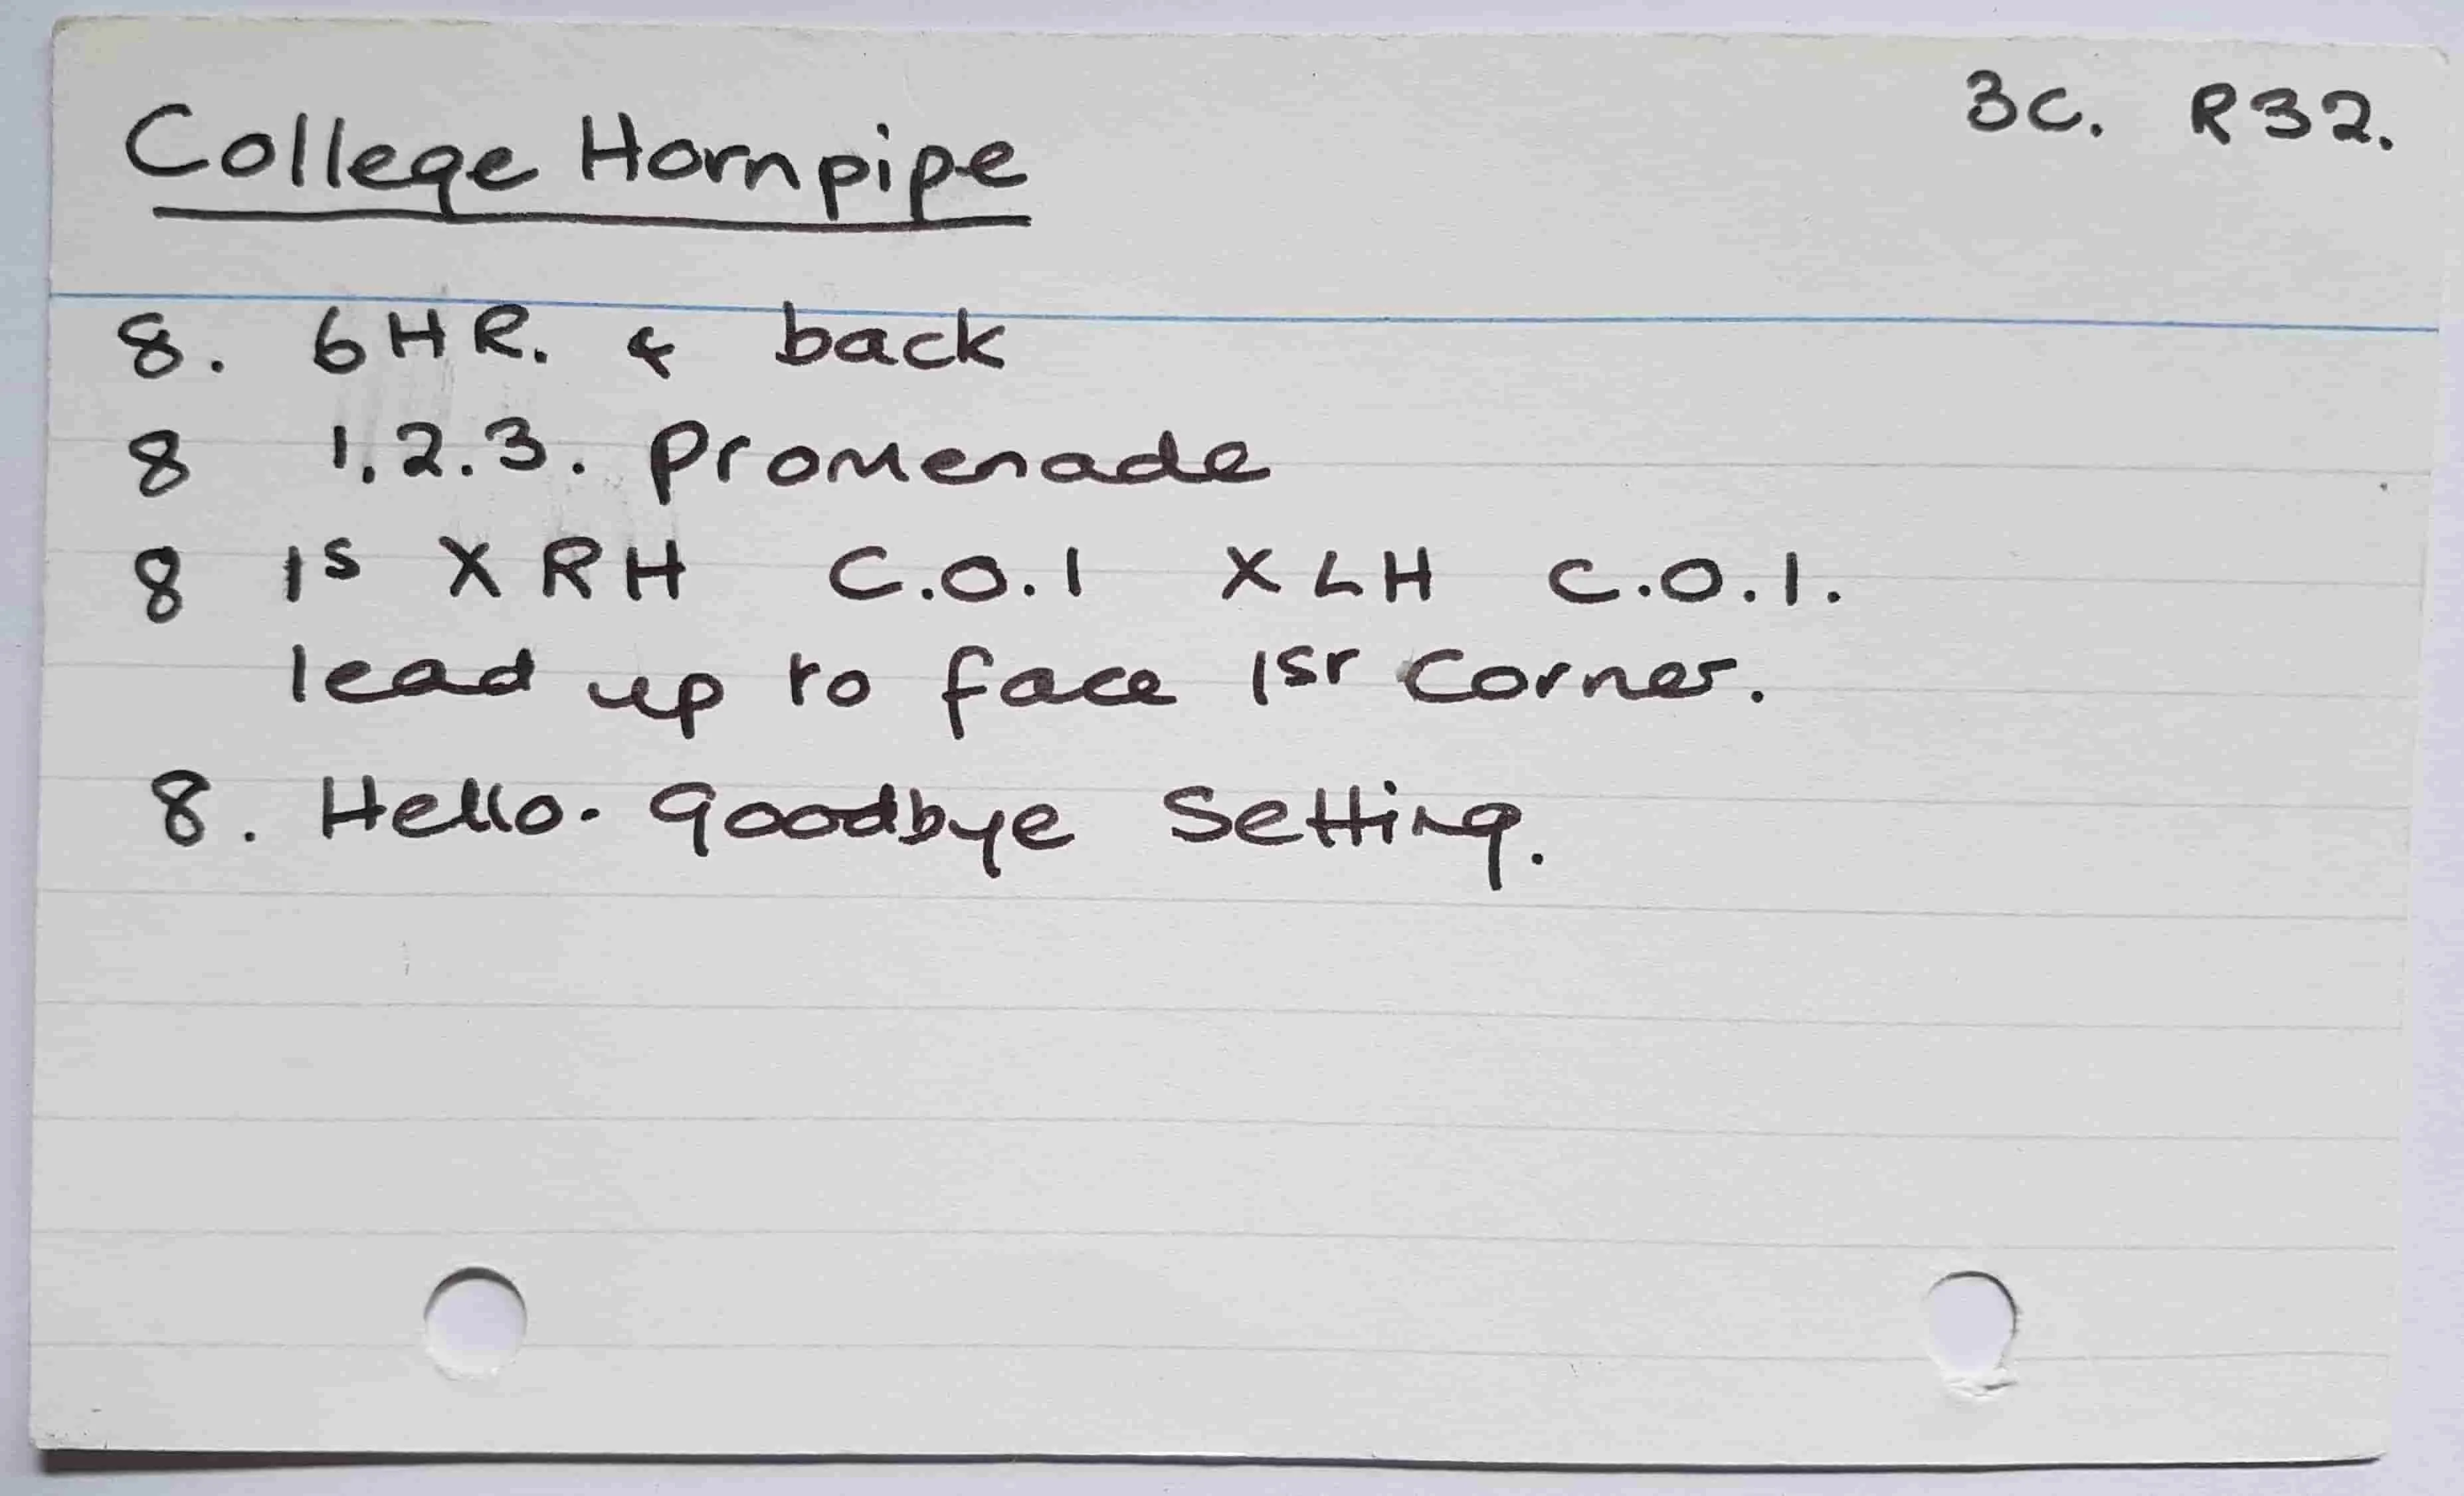 College Hornpipe 3C. R32.
8. 6HR. & back
8 1.2.3. Promenade
8 1s X RH C.O.1 X LH C.O.1.
lead up to face 1st Corner.
8. Hello. Goodbye Setting.